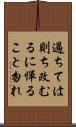 過ちては
則ち改む
るに憚る
こと勿れ